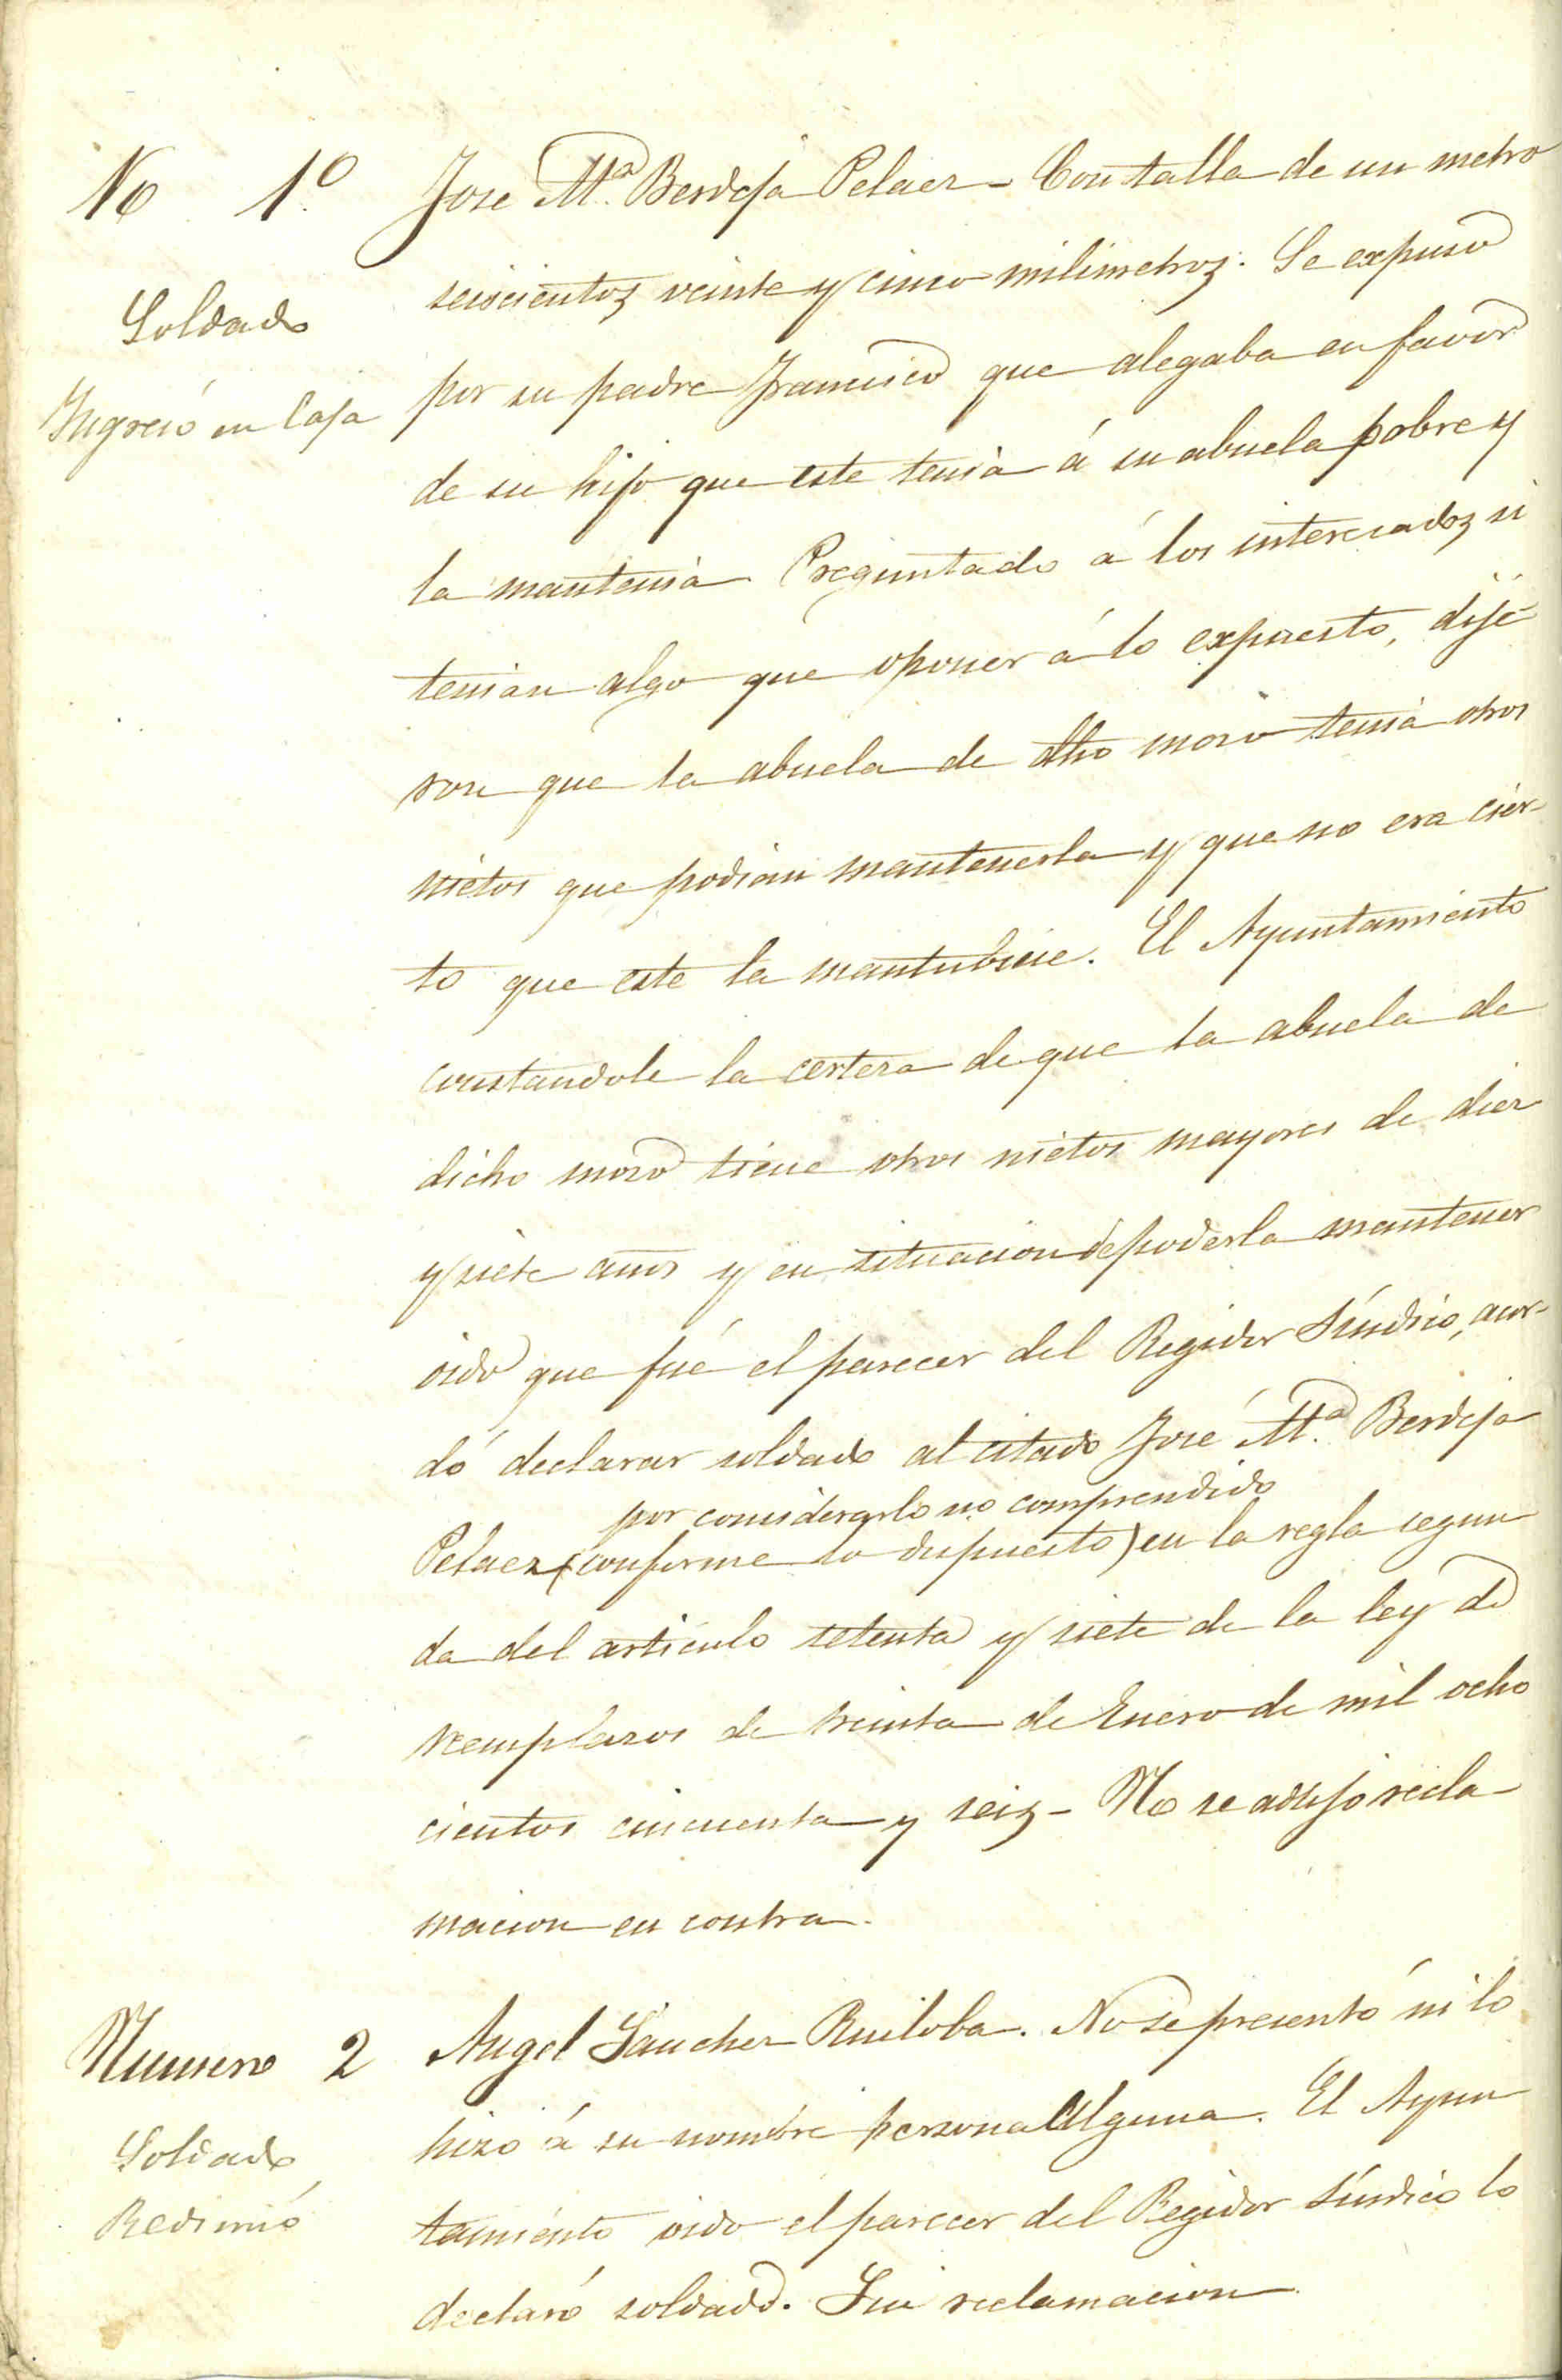 No 1.º
Soldado
Ingresó en Caja
Jose M.ª Berdeja Pelaez - Con talla de un metro
seiscientos veinte y cinco milimetros. Se expuso
por su padre Francisco que alegaba en favor
de su hijo que este tenia á su abuela pobre y
la mantenia Preguntado á los interesados si
tenian algo que oponer á lo expuesto, dije-
ron que la abuela de dho mozo tenia otros
nietos que podian mantenerla y que no era cier-
to que este la mantubiese. El Ayuntamiento
constandole la certeza de que la abuela de
dicho mozo tiene otros nietos mayores de diez
y siete anos y en situacion de poderla mantener
oido que fué el parecer del Regidor Síndico, acor-
dó declarar soldado al citado José M.ª Berdeja
por considerarlo no comprendido
Pelaez (conforme lo dispuesto) en la regla segun
da del articulo setenta y siete de la ley de
reemplazos de treinta de Enero de mil ocho
cientos cincuenta y seis - No se adujo recla-
macion en contra.
Numero 2
Soldado
Redimió
Angel Sanchez Ruiloba. No se presentó ni lo
hizo á su nombre persona alguna. El Ayun
tamiento oido el parecer del Regidor Síndico lo
declaró soldado. Sin reclamacion